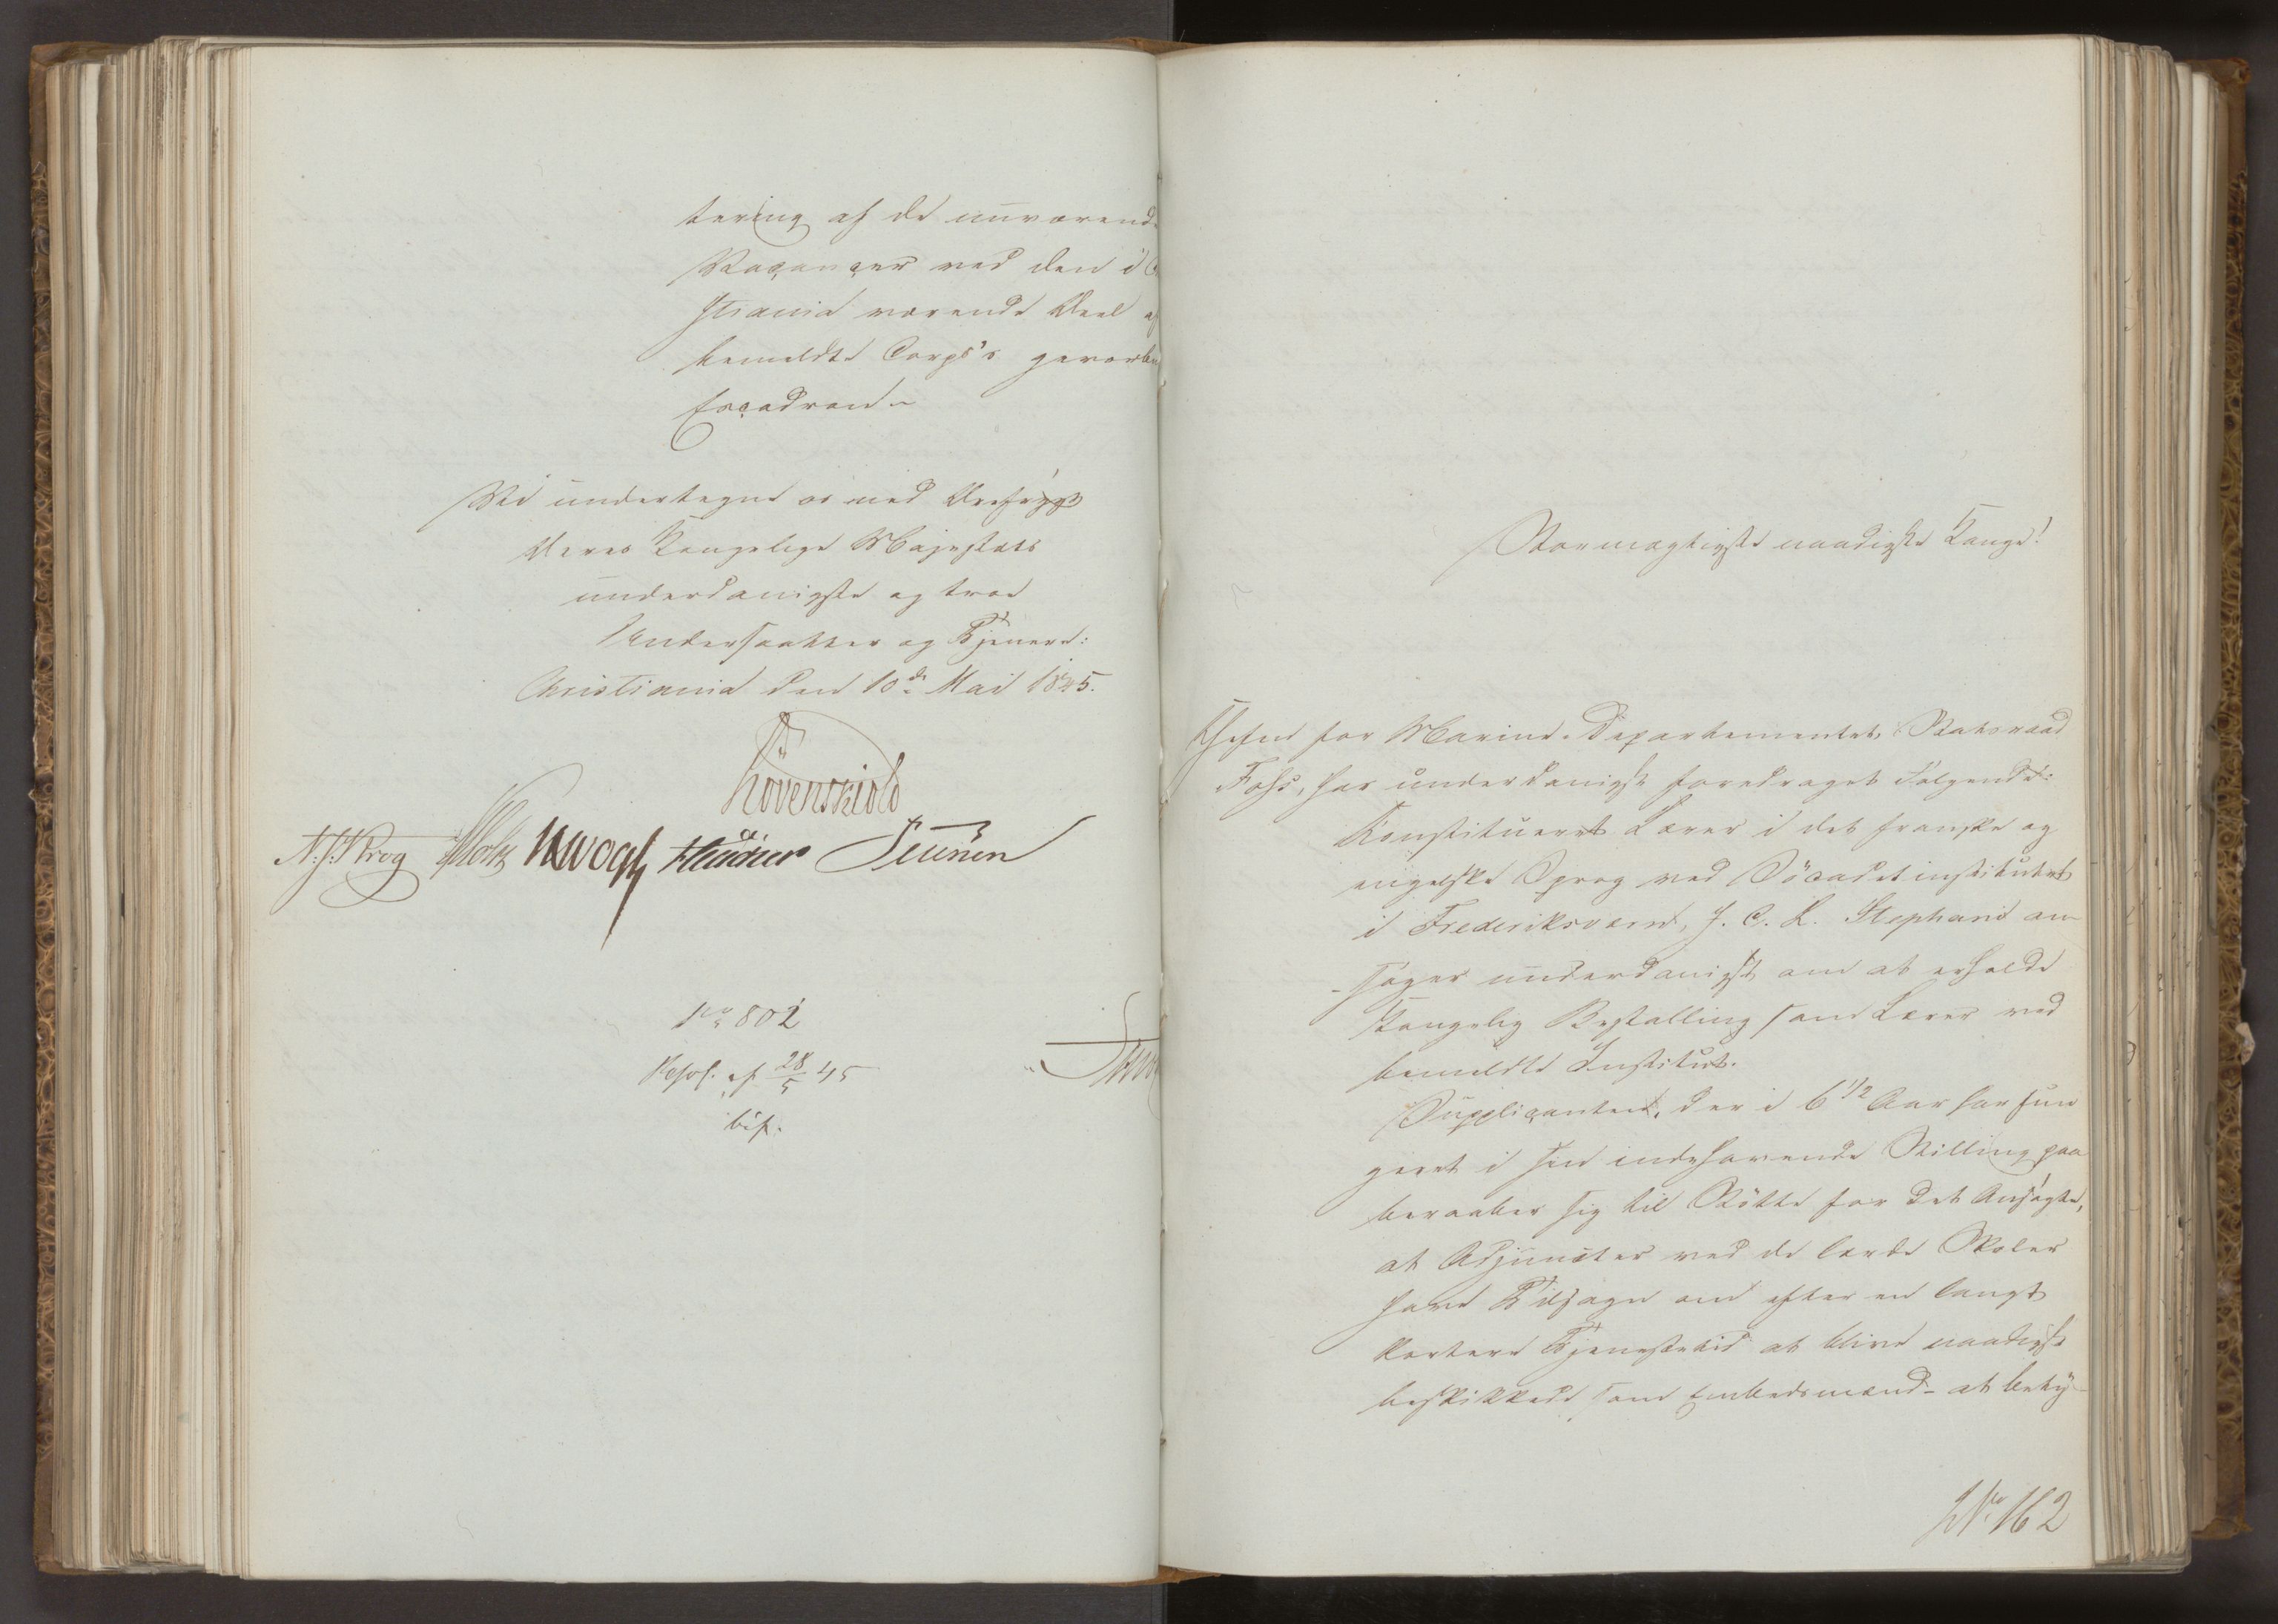 tering af de nuværende
Vacancer ved den i
stiania værende Deel af
bemeldte Corps's gevorbne
Escadron
Vi undertegne os med Dybeste
Deres Kongelige Majestæts
underdanigste og troe
Undersaatter og Tjenere:
Christiania den 10de Mai 1845.
Lövenskiold
N. J. Krog Vogt Petersen
No 802
Resol. af 28/5 45
bif.
Stormægtigste naadigste Konge!
Chefen for Marine-Departementet, Statsraad
Foss, har underdanigst foredraget Følgende:
Konstitueret Lærer i det franske og
engelske Sprog ved Söcadetinstitutet
i Frederiksværn, J. C. L. Stephani an-
-søger underdanigst om at erholde
kongelig Bestalling som Lærer ved
bemeldte Institut.
Supplicanten, der i 6 1/2 Aar har fun
geret i sin indehavende Stilling paa
beraaber sig til Støtte for det Ansøgte,
at Adjuncter ved de lærde Skoler
have Tilsagn om efter en langt
kortere Tjenestetid at blive naadigst
beskikkede som Embedsmænd - at bety-
No 162